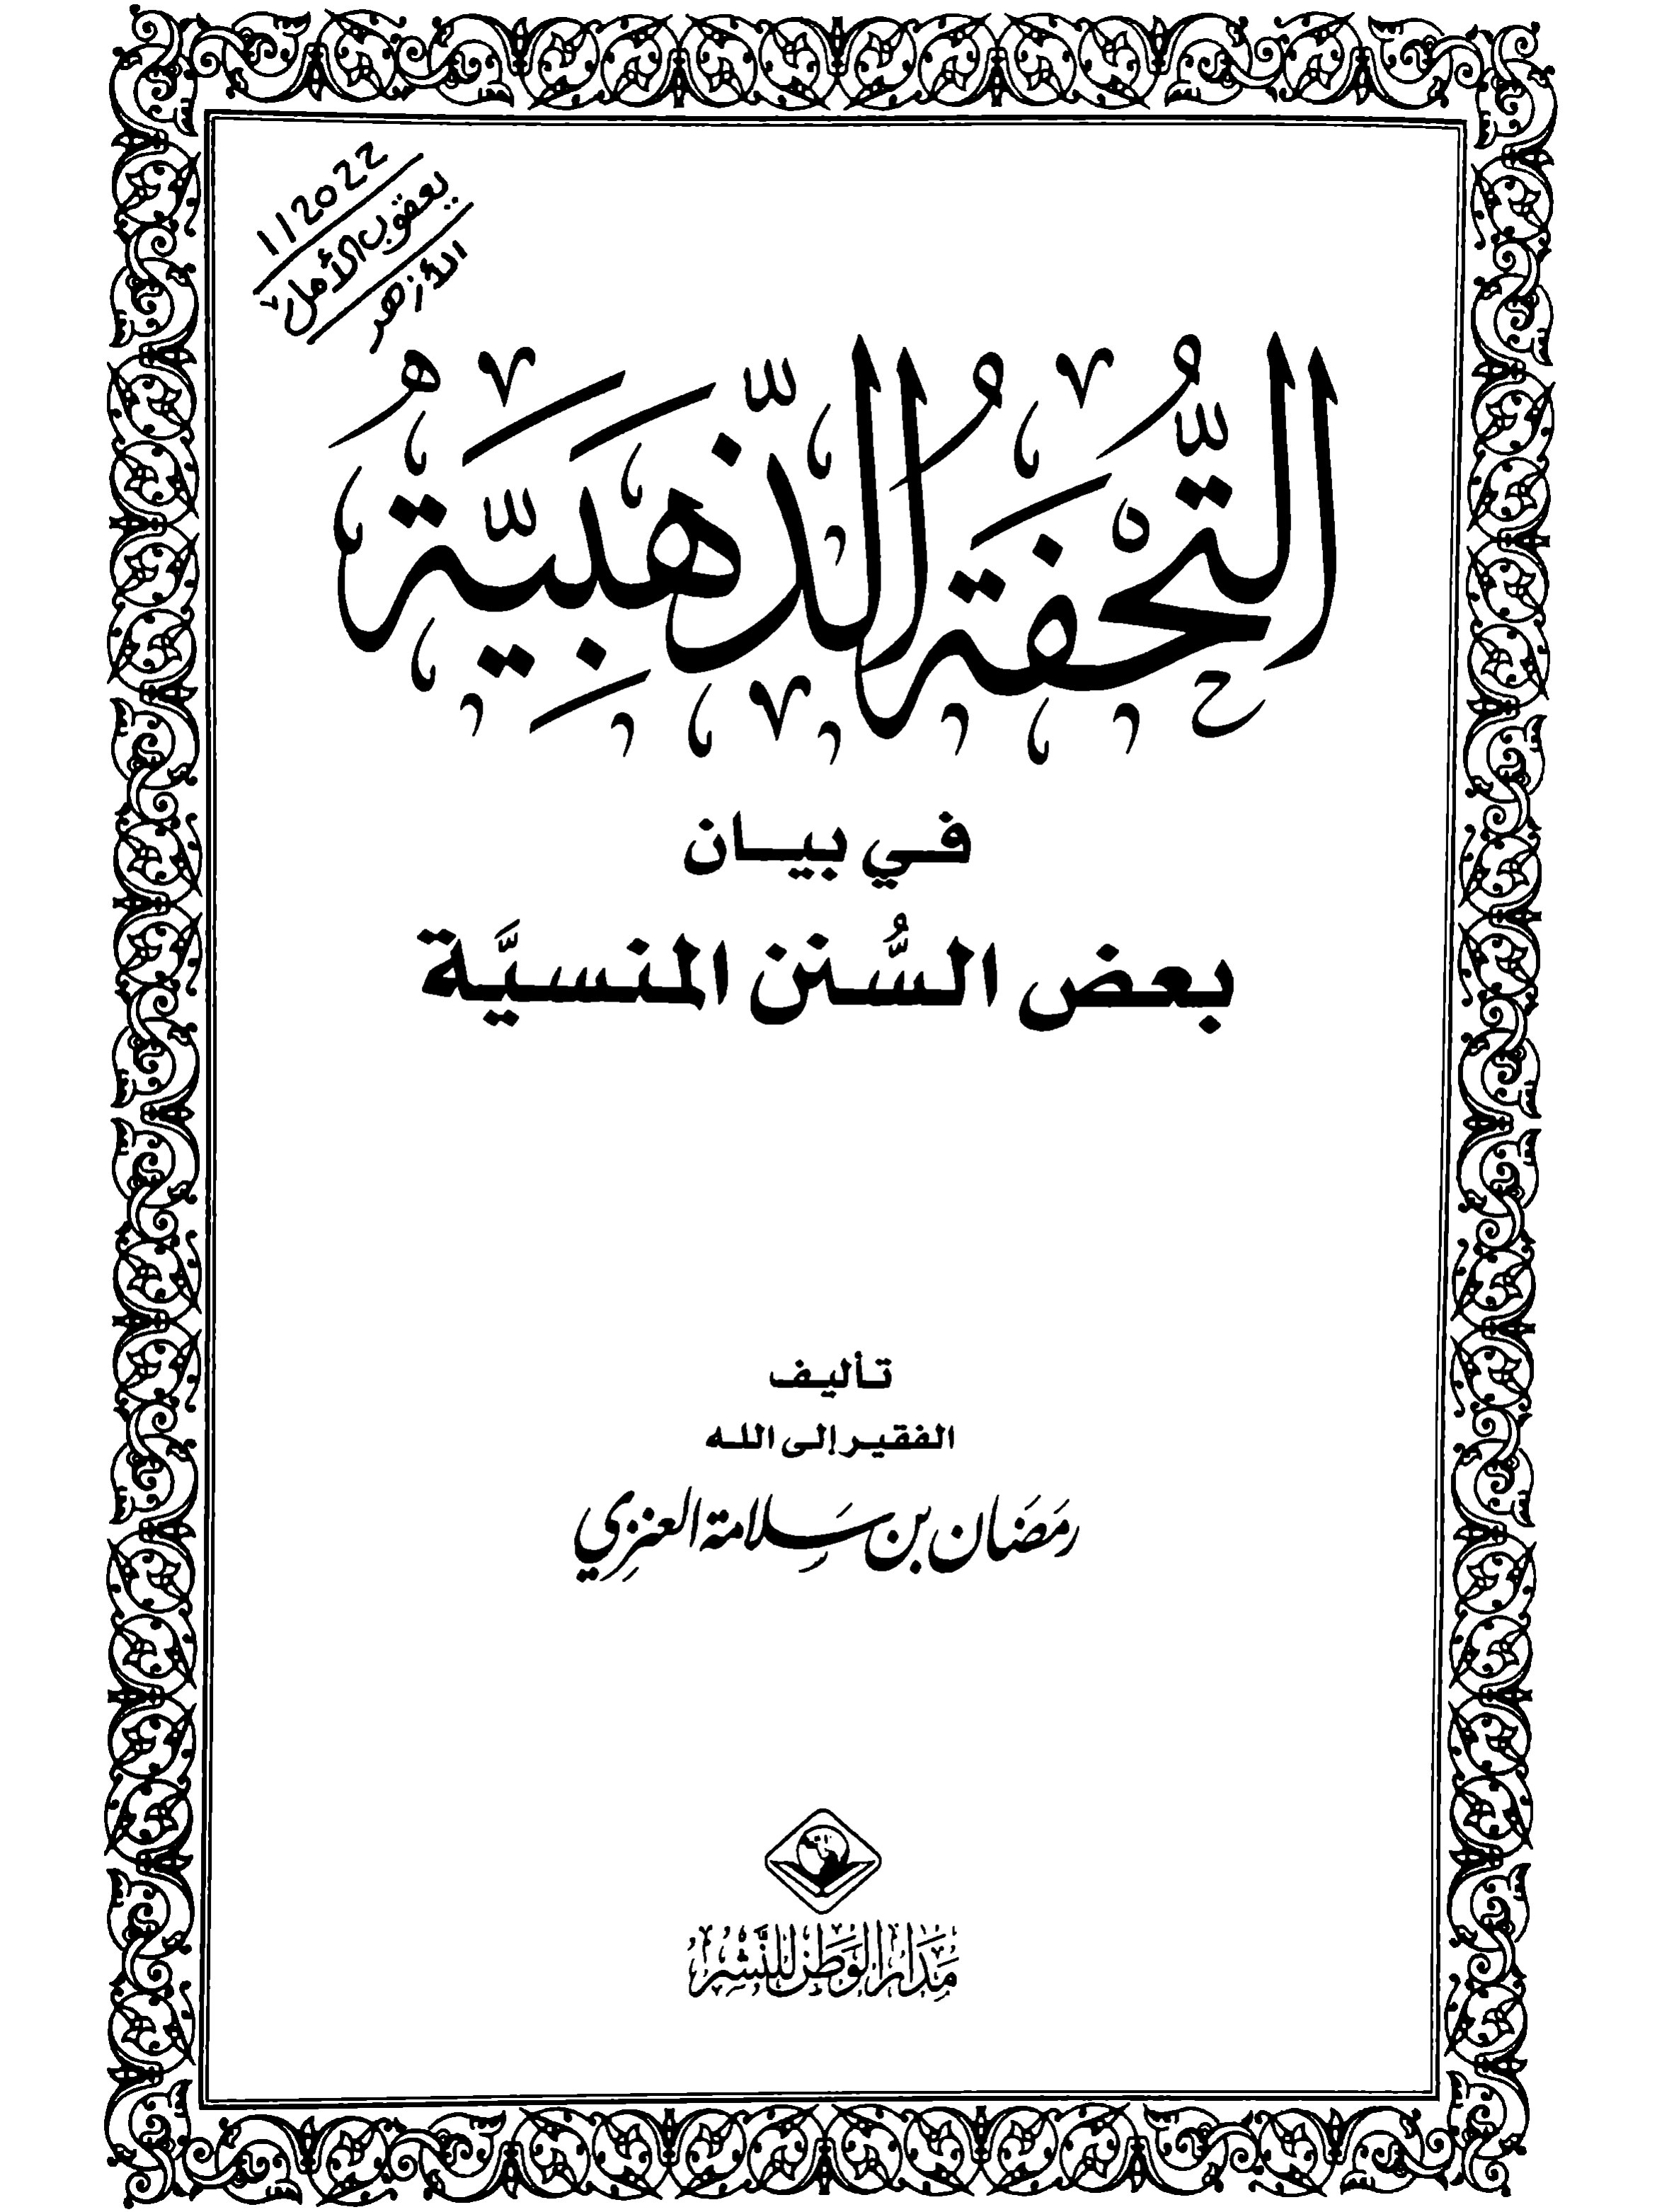 11/2022
يعقوب
الأزهر
التُّحْفَةُ الذَّهَبِيَّةُ
في بيان
بعض السُّنن المنسيَّة
تأليف
الفقير إلى الله
رمَضَان بن سَلامة العنزِي
مَدَارُ الوَطَن لِلنَّشْر